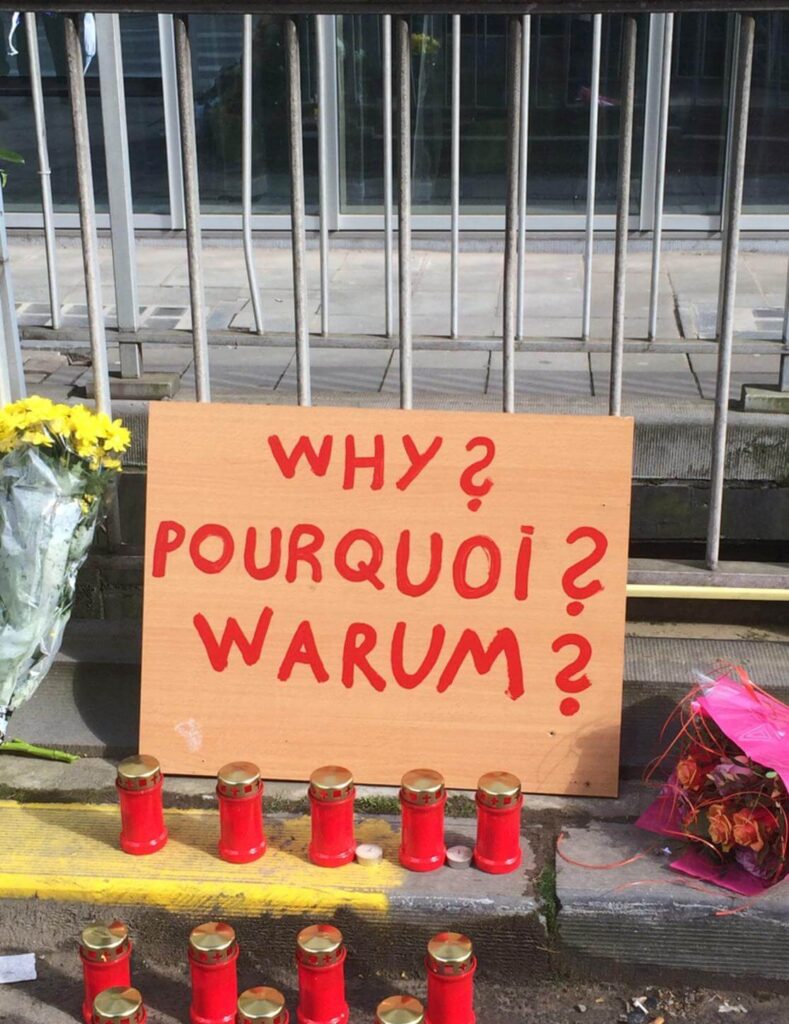 WHY?
POURQUOI?
WARUM?